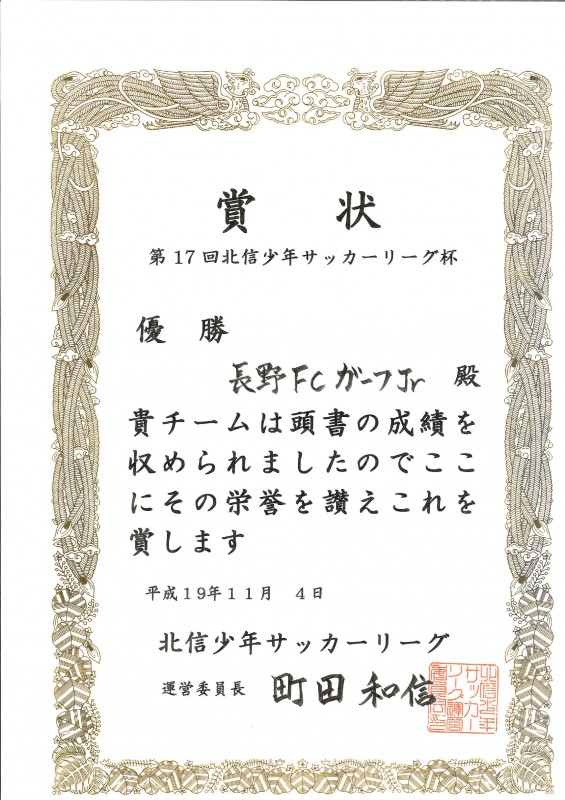 賞状
第17回北信少年サッカーリーグ杯
優勝
長野FCガーフJr 殿
貴チームは頭書の成績を
収められましたのでここ
にその栄誉を讃えこれを
賞します
平成19年11月 4日
北信少年サッカーリーグ
運営委員長 町田和信
北信少年
サッカー
リーグ運営
委員長印